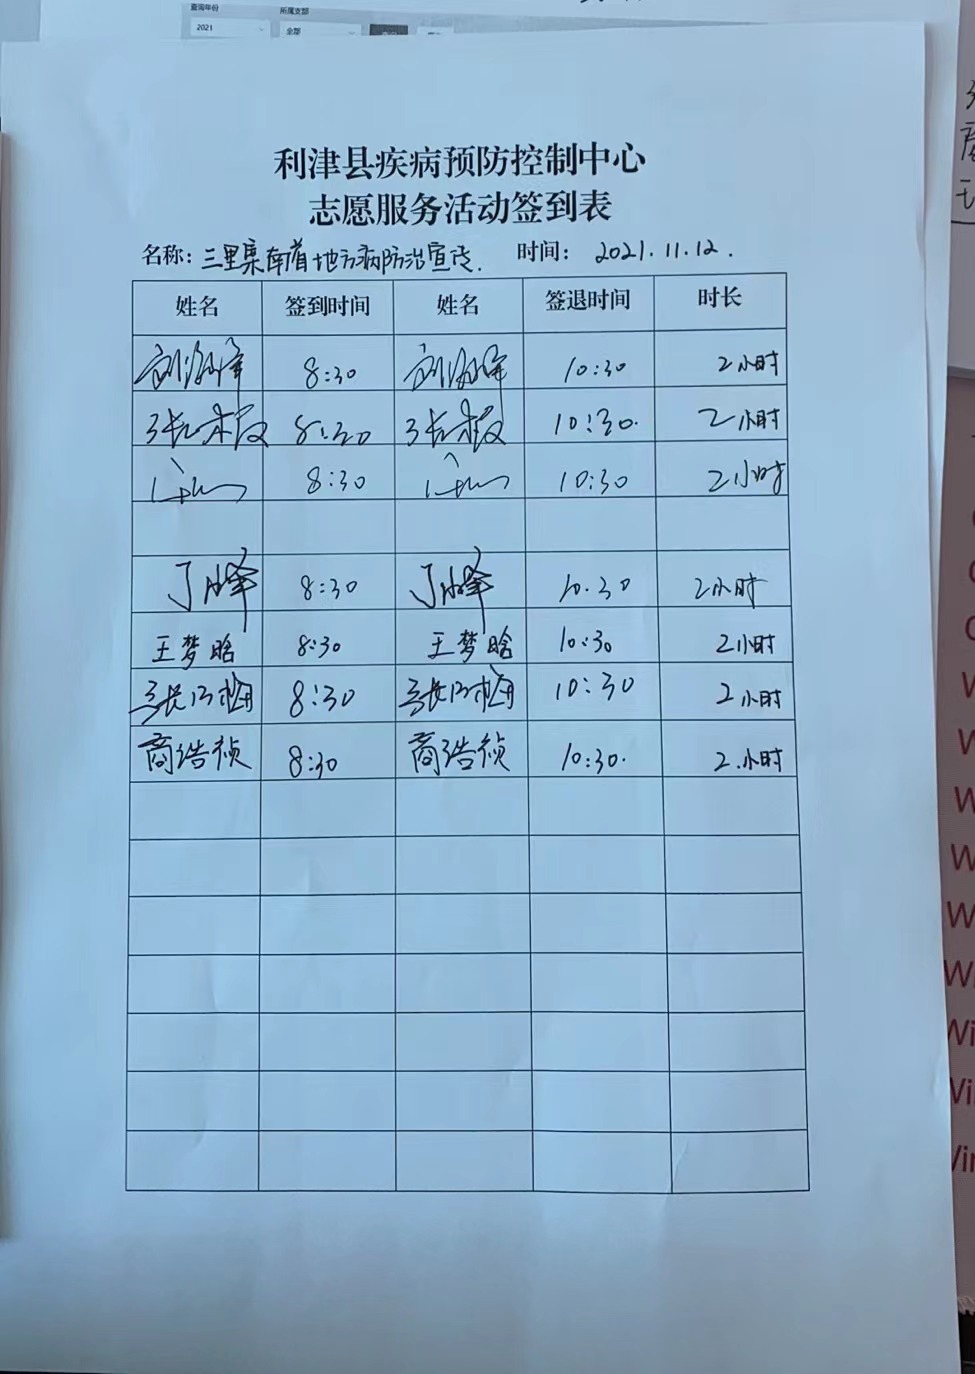 查询年份
所属支部
2021
全部
利津县疾病预防控制中心
志愿服务活动签到表
名称: 三里集南首地方病防治宣传. 时间: 2021.11.12.
姓名 签到时间 姓名 签退时间 时长
8:30 10:30 2小时
8:30 10:30. 2小时
8:30 10:30 2小时
丁峰 8:30 丁峰 10:30 2小时
王梦晗 8:30 王梦晗 10:30 2小时
8:30 10:30 2小时
商浩祯 8:30 商浩祯 10:30. 2.小时